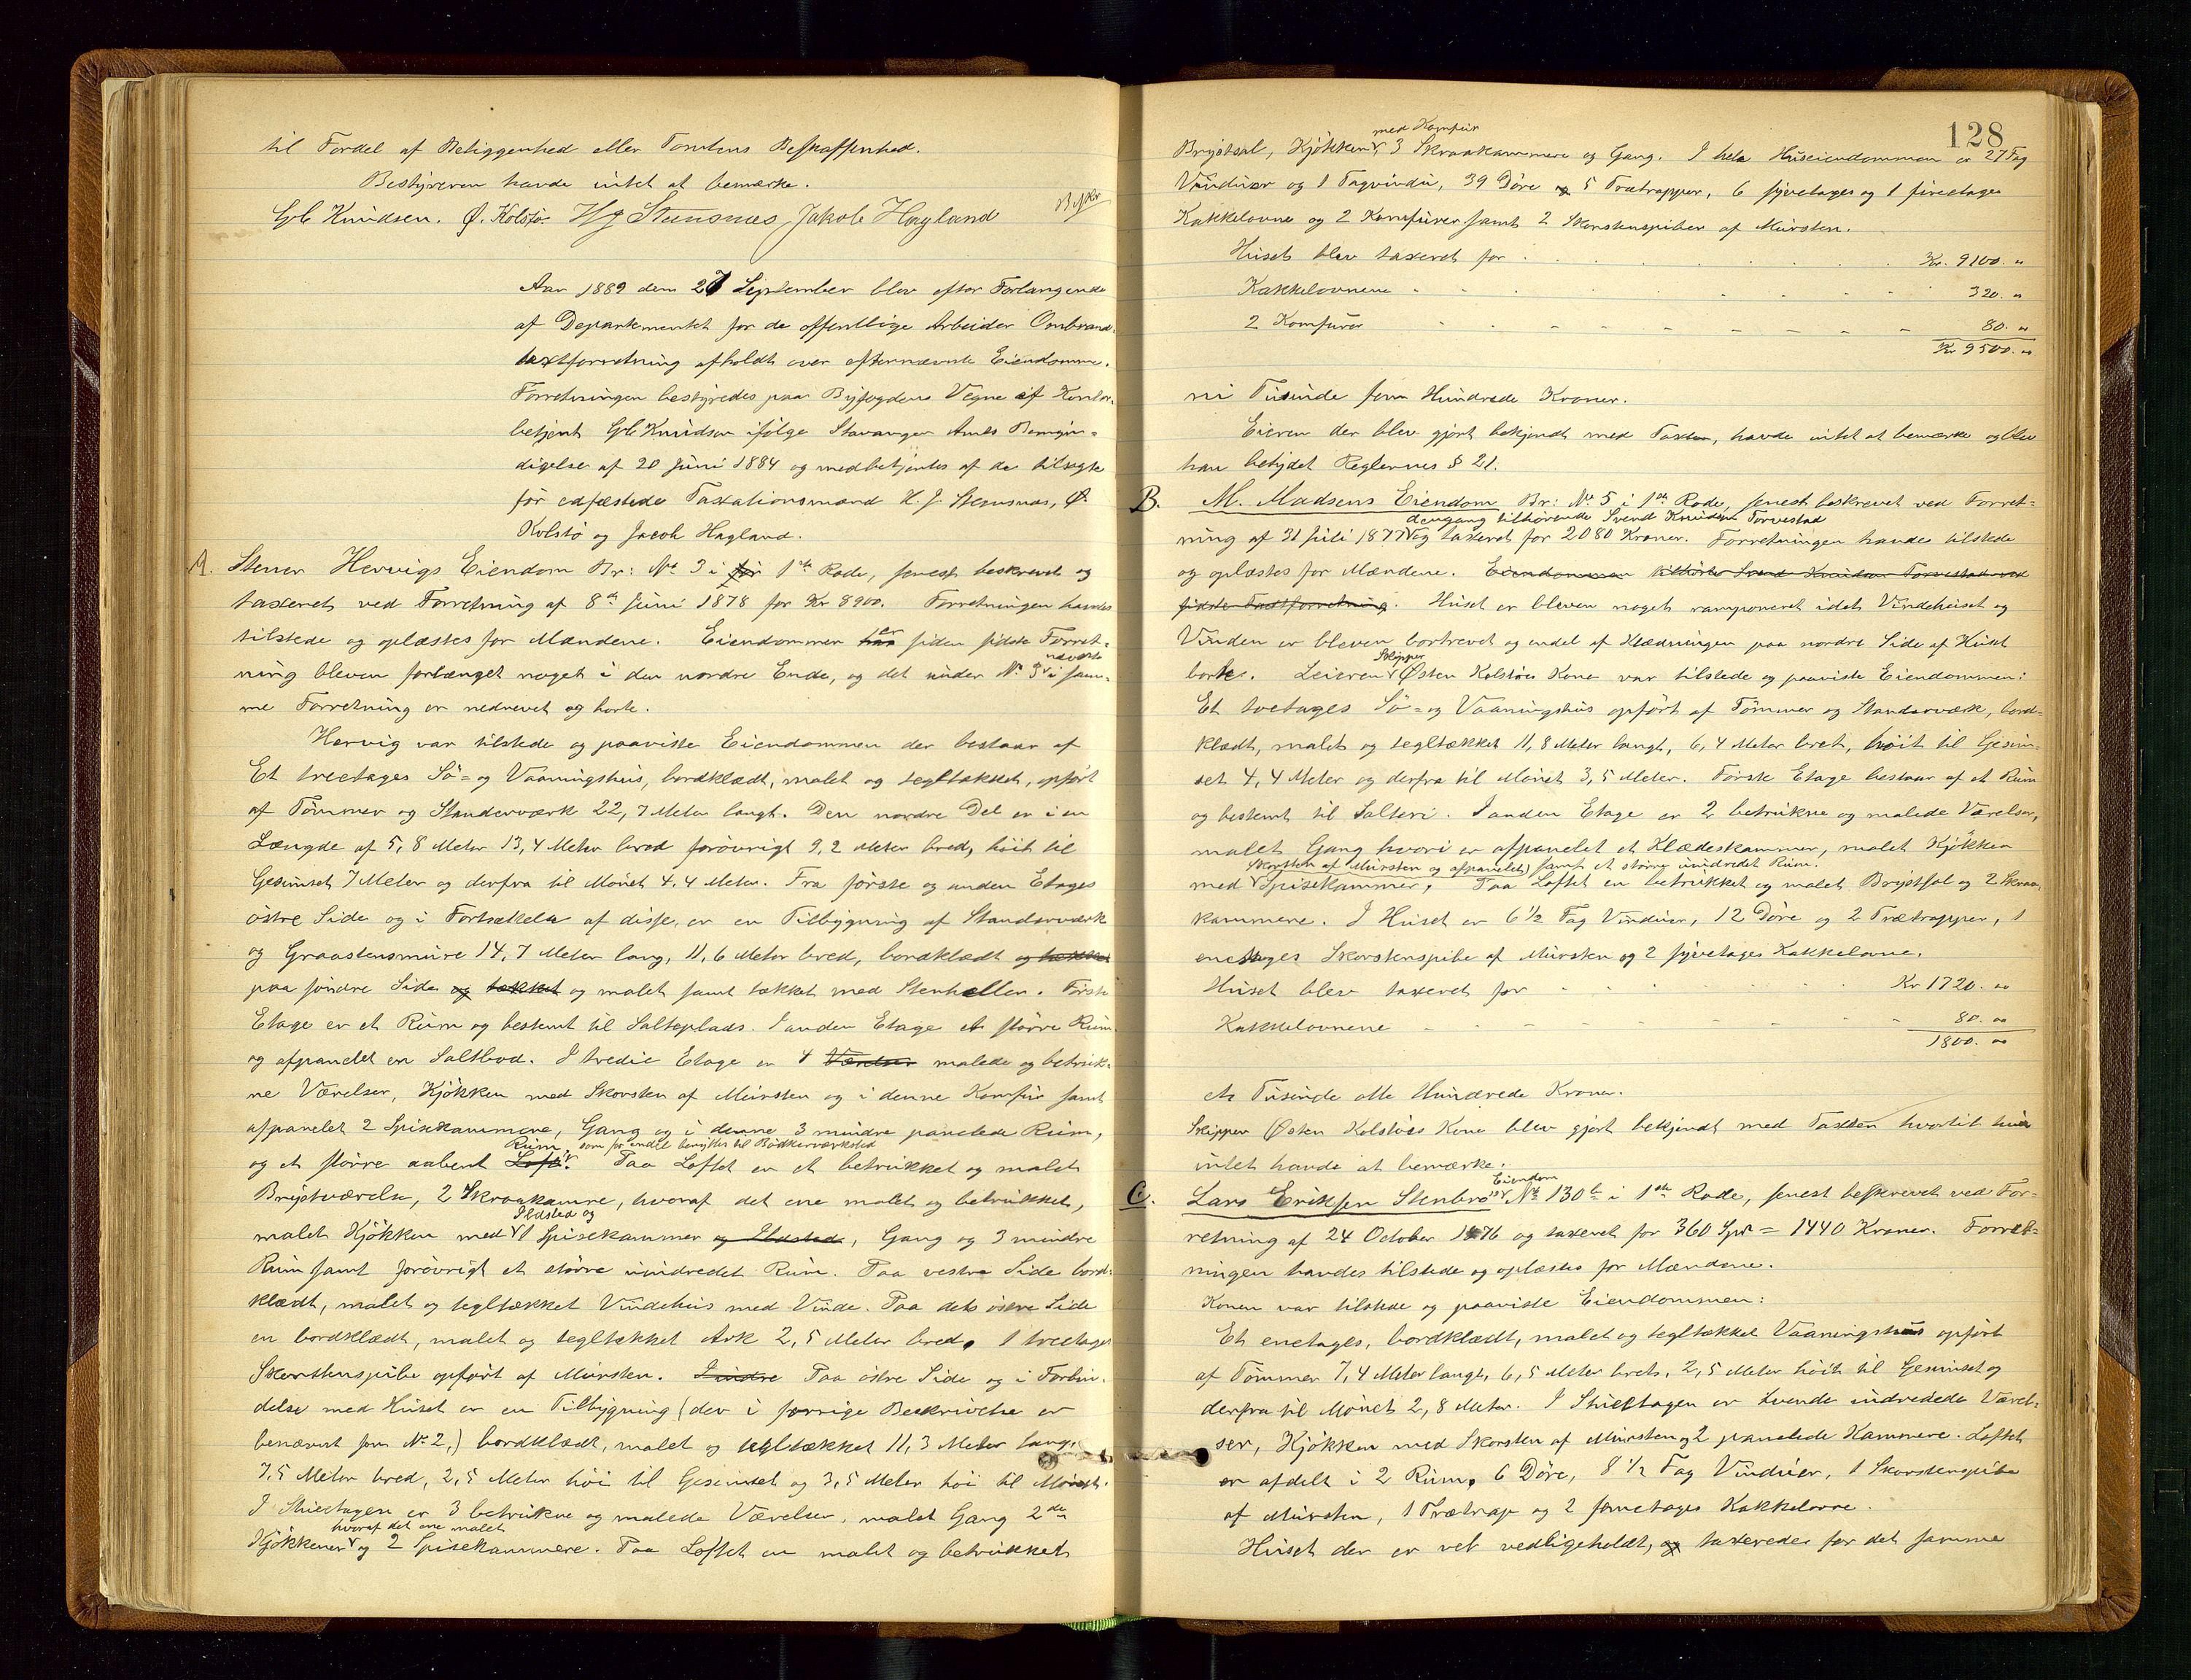 til Fordel af Beliggenhed eller Tomtens Beskaffenhed.
Bestyreren havde intet at bemærke.
Gb Knudsen. Ø. Kolstø. HJ Stensnæs Jakob Hagland
Aar 1889 den 27 September blev efter Forlangende
af Departementet for de offentlige Arbeider Ombrand-
taxtforretning afholdt over efternævnte Eiendomme.
Forretningen bestyredes paa Byfogdens Vegne af Kontor-
betjent Gb Knudsen ifølge Stavanger Amts Bemyn-
digelse af 20 Juni 1884 og medbetjentes af de tilsagte
før edfæstede Taxationsmænd H. J. Stensnæs, Ø.
Kolstø og Jacob Hagland.
A. Stener Hervigs Eiendom Br: No 3 i for 1ste Rode, senest beskrevet og
taxeret ved Forretning af 8de Juni 1878 for Kr 8900. Forretningen havdes
tilstede og oplæstes for Mændene. Eiendommen har er siden sidste Forret-
ning bleven forlænget noget i den nordre Ende, og det under No 3 nævnte i sam-
me Forretning er nedrevet og borte.
Hervig var tilstede og paaviste Eiendommen der bestaar af
Et treetages Sø- og Vaaningshus, bordklædt, malet og tegltækket, opført
af Tømmer og Standerværk 22,7 Meter langt. Den nordre Del er i en
Længde af 5,8 Meter 13,4 Meter bred forøvrigt 9,2 Meter bred, høit til
Gesimset 7 Meter og derfra til Mønet 4,4 Meter. Fra første og anden Etages
østre Side og i Fortsættelse af disse, er en Tilbygning af Standerværk
og Graastensmure 14,7 Meter lang, 11,6 Meter bred, bordklædt og tækket
paa søndre Side og tækket og malet samt tækket med Stenheller. Første
Etage er et Rum og bestemt til Salteplads. I anden Etage et større Rum
og afpanelet en Saltbod. I tredie Etage er 4 Værelser malede og betruk-
ne Værelser, Kjøkken med Skorsten af Mursten og i denne Komfur samt
afpanelet 2 Spisekammere, Gang og i denne 3 mindre panelede Rum,
og et større aabent Loft. Rum, som for endel benyttes til Bødkerværksted Paa Loftet er et betrukket og malet
Brystværelse, 2 Skraakamre, hvoraf det ene malet og betrukket,
malet Kjøkken med Ildsted og 1 Spisekammer og Ildsted, Gang og 3 mindre
Rum samt forøvrigt et større uindredet Rum. Paa vestre Side bord-
klædt, malet og tegltækket Vindehus med Vinde. Paa dets østre Side
en bordklædt, malet og tegltækket Ark 2,5 Meter bred, 1 treetages
Skorstenspibe opført af Mursten. I indre Paa østre Side og i Forbin-
delse med Huset er en Tilbygning (der i forrige Beskrivelse er
benævnt som No 2,) bordklædt, malet og tegltækket 11,3 Meter lang,
7,5 Meter bred, 2,5 Meter høi til Gesimset og 3,5 Meter høi til Mønet.
I Stuetagen er 3 betrukne og malede Værelser, malet Gang 2de
Kjøkkener hvoraf det ene malet og 2 Spisekammere. Paa Loftet en malet og betrukket
128
Brystsal, Kjøkken med Komfur, 3 Skraakammere og Gang. I hele Huseiendommen er 27 Fag
Vinduer og 1 Tagvindu, 39 Døre og 5 Trætrapper, 6 fyretages og 1 firetages
Kakkelovne og 2 Komfurer samt 2 Skorstenspiber af Mursten.
Huset blev taxeret for Kr. 9100. "
Kakkelovnene 320. "
2 Komfurer 80. "
Kr 9500. "
ni Tusinde fem Hundrede Kroner.
Eieren der blev gjort bekjendt med Taxten, havde intet at bemærke og blev
han betydet Reglernes § 21.
B. M. Madsens Eiendom Br: No 5 i 1ste Rode, senest beskrevet ved Forret-
ning af 31 Juli 1877 dengang tilhørende Svend Knudsen Torvestad og taxeret for 2080 Kroner. Forretningen havdes tilstede
og oplæstes for Mændene. Eiendommen tilhørte Svend Knudsen Torvestad ved
sidste Taxtforretning. Huset er bleven noget ramponeret idet Vindehuset og
Vinden er bleven bortrevet og endel af Klædningen paa nordre Side af Huset
borte. Leieren Skipper Østen Kolstøs Kone var tilstede og paaviste Eiendommen:
Et toetages Sø- og Vaaningshus opført af Tømmer og Standerværk, bord-
klædt, malet og tegltækket 11,8 Meter langt, 6,4 Meter bret, høit til Gesim-
set 4,4 Meter og derfra til Mønet 3,5 Meter. Første Etage bestaar af et Rum
og bestemt til Salteri. I anden Etage er 2 betrukne og malede Værelser,
malet Gang hvori er afpanelet et Klædeskammer, malet Kjøkken
med Skorsten af Mursten og afpanelet Spisekammer, samt et større uindredet Rum. Paa Loftet en betrukket og malet Brystsal og 2 Skraa-
kammere. I Huset er 6 1/2 Fag Vinduer, 12 Døre og 2 Trætrapper, 1
enetages Skorstenspibe af Mursten og 2 fyretages Kakkelovne.
Huset blev taxeret for Kr 1720. "
Kakkelovnene 80. "
1800. "
et Tusinde otte Hundrede Kroner.
Skipper Østen Kolstøes Kone blev gjort bekjendt med Taxten hvortil hun
intet havde at bemærke.
C. Lars Eriksen Stenbro's Eiendom No 130b i 1ste Rode, senest beskrevet ved For-
retning af 24 October 1876 og taxeret for 360 Spd = 1440 Kroner. Forret-
ningen havdes tilstede og oplæstes for Mændene.
Konen var tilstede og paaviste Eiendommen:
Et enetages, bordklædt, malet og tegltækket Vaaningshus opført
af Tømmer 7,4 Meter langt, 6,5 Meter bret, 2,5 Meter høit til Gesimset og
derfra til Mønet 2,8 Meter. I Stuetagen er tvende indredede Værel-
ser, Kjøkken med Skorsten af Mursten og 2 panelede Kammere. Loftet
er afdelt i 2 Rum, 6 Døre, 8 1/2 Fag Vinduer, 1 Skorstenspibe
af Mursten, 1 Trætrap og 2 Kakkelovne.
Huset der er vel vedligeholdt, og taxeredes for det samme